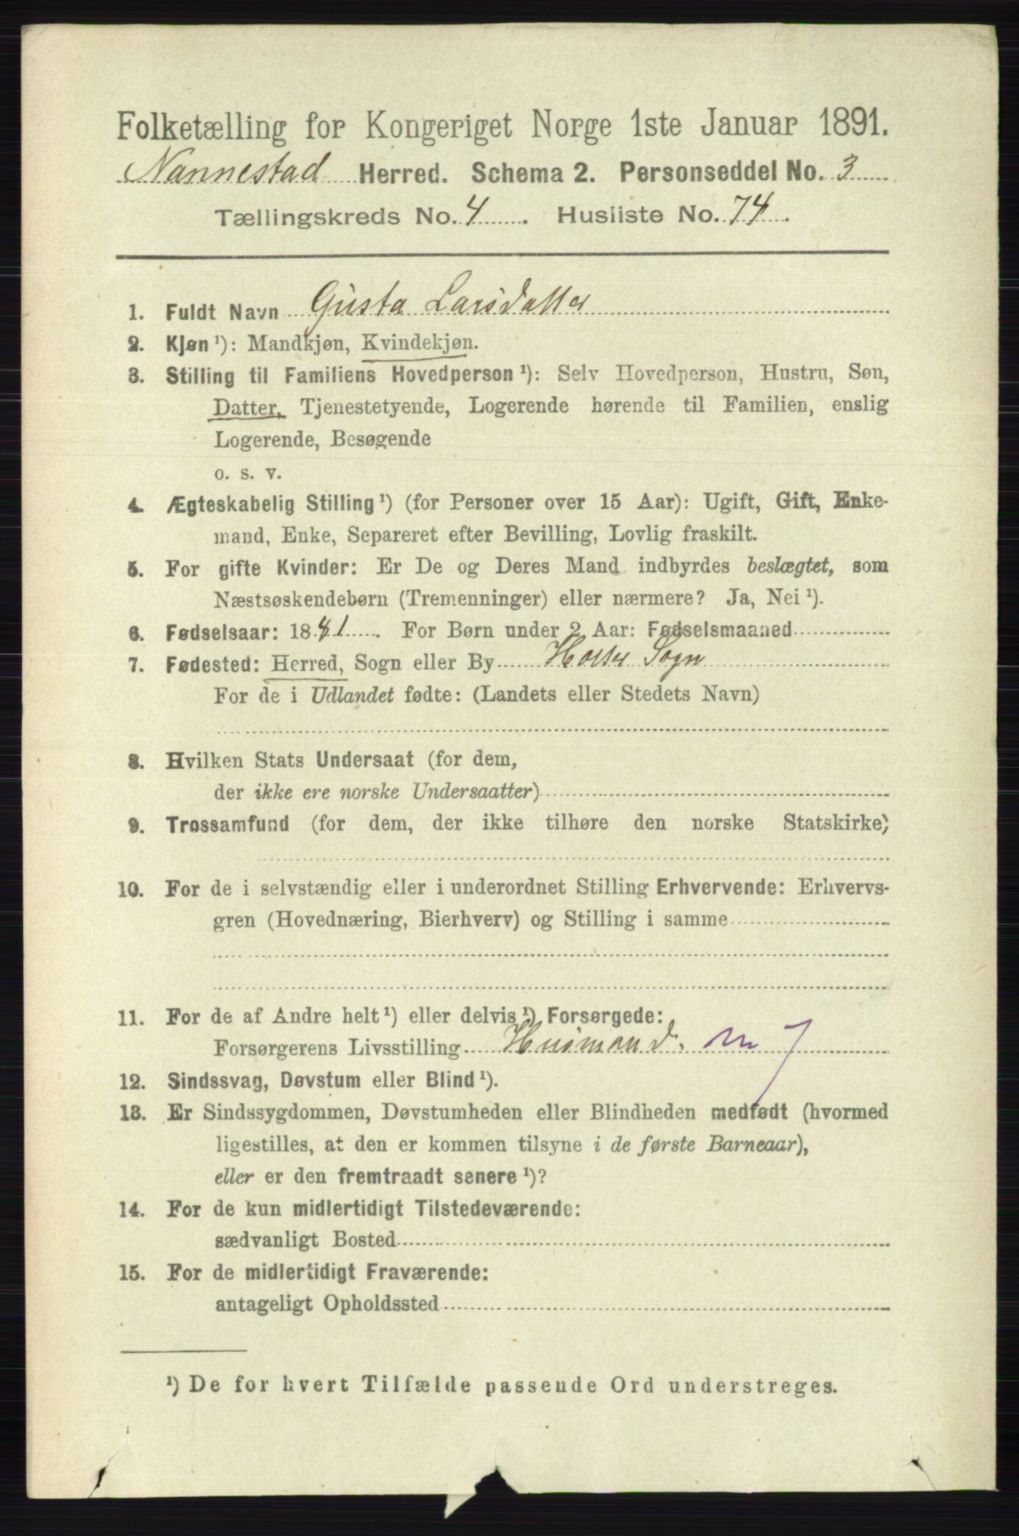 Folketælling for Kongeriget Norge 1ste Januar 1891.
Nannestad Herred. Schema 2. Personseddel No. 3
Tællingskreds No. 4. Husliste No. 74.
1. Fuldt Navn Gusta Larsdatter
2. Kjøn ¹): Mandkjøn, Kvindekjøn.
3. Stilling til Familiens Hovedperson ¹): Selv Hovedperson, Hustru, Søn,
Datter, Tjenestetyende, Logerende hørende til Familien, enslig
Logerende, Besøgende
o. s. v.
4. Ægteskabelig Stilling ¹) (for Personer over 15 Aar): Ugift, Gift, Enke-
mand, Enke, Separeret efter Bevilling, Lovlig fraskilt.
5. For gifte Kvinder: Er De og Deres Mand indbyrdes beslægtet, som
Næstsøskendebørn (Tremenninger) eller nærmere? Ja, Nei ¹).
6. Fødselsaar: 1881. For Børn under 2 Aar: Fødselsmaaned
7. Fødested: Herred, Sogn eller By Holter Sogn
For de i Udlandet fødte: (Landets eller Stedets Navn)
8. Hvilken Stats Undersaat (for dem,
der ikke ere norske Undersaatter)
9. Trossamfund (for dem, der ikke tilhøre den norske Statskirke)
10. For de i selvstændig eller i underordnet Stilling Erhvervende: Erhvervs-
gren (Hovednæring, Bierhverv) og Stilling i samme
11. For de af Andre helt ¹) eller delvis ¹) Forsørgede:
Forsørgerens Livsstilling Husmand. m 7
12. Sindssvag, Døvstum eller Blind ¹).
13. Er Sindssygdommen, Døvstumheden eller Blindheden medfødt (hvormed
ligestilles, at den er kommen tilsyne i de første Barneaar),
eller er den fremtraadt senere ¹)?
14. For de kun midlertidigt Tilstedeværende:
sædvanligt Bosted
15. For de midlertidigt Fraværende:
antageligt Opholdssted
¹) De for hvert Tilfælde passende Ord understreges.